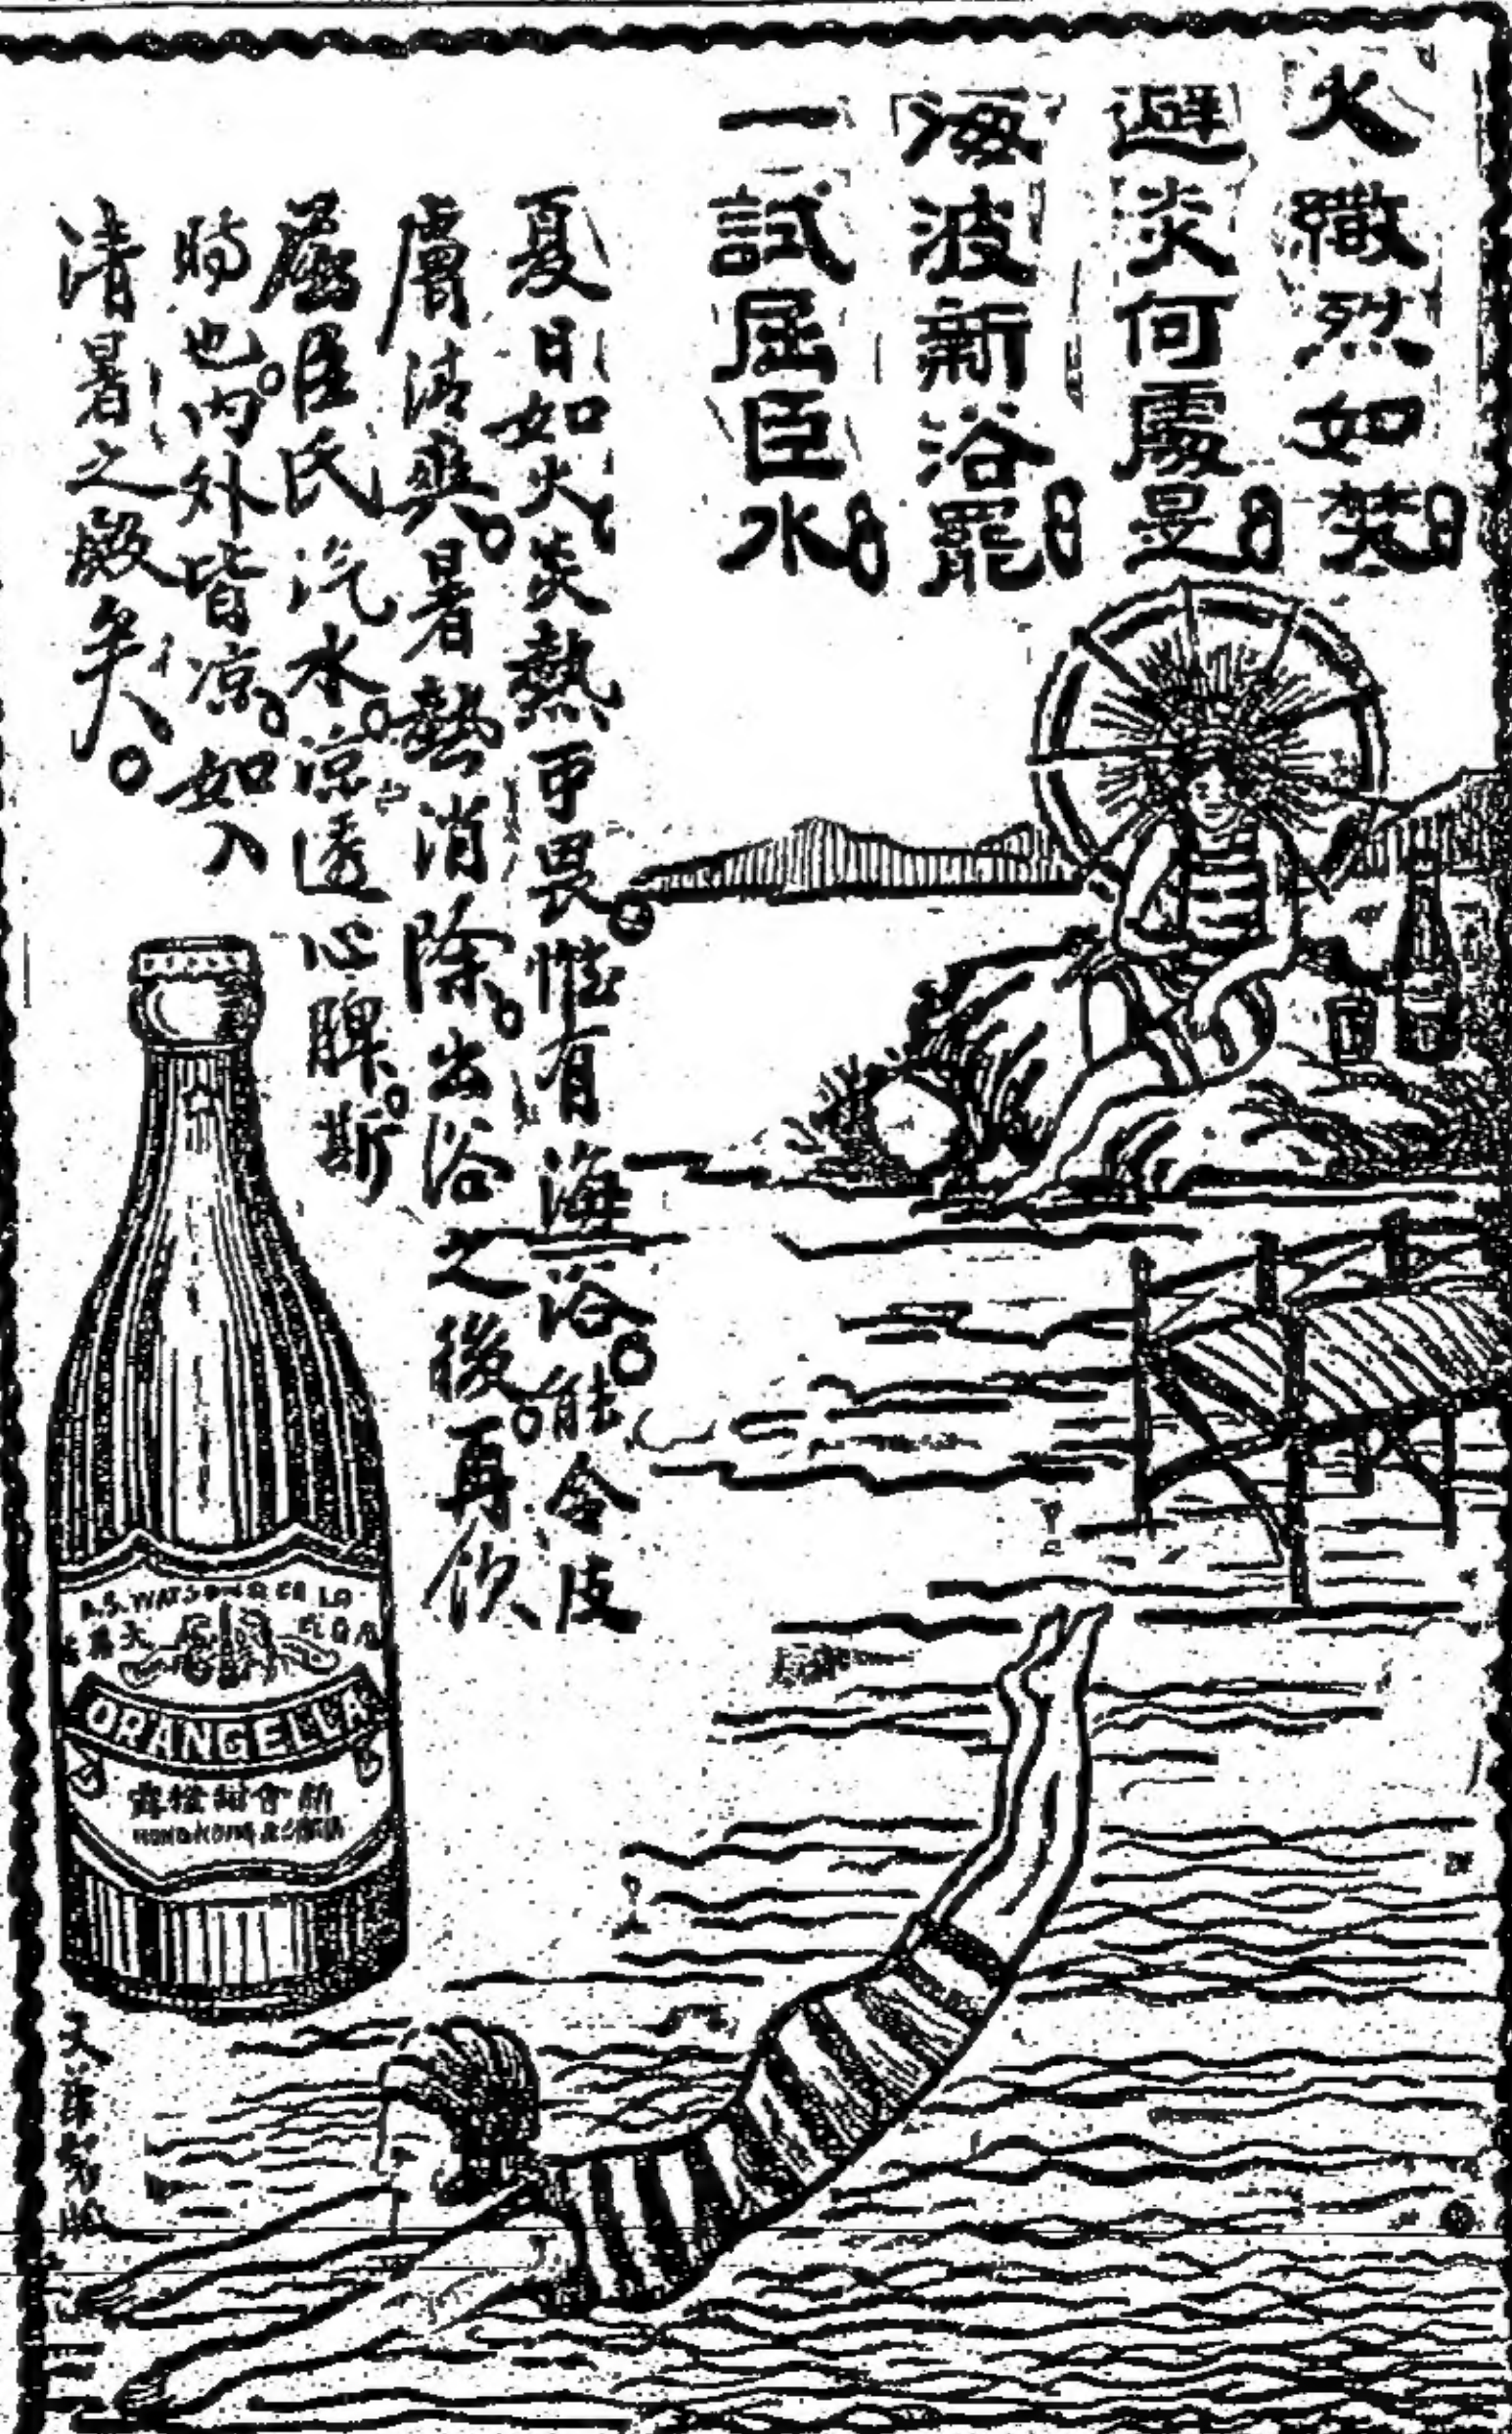 火繖烈如焚
避炎何處是
海波新浴罷
一試屈臣水
夏日如火炎熱可畏。惟有海浴。能令皮
膚清爽。暑熱消除。出浴之後。再飲
屈臣氏汽水。涼透心脾。斯
時也。內外皆凉。如入
清暑之殿矣。
A.S. WATSON & CO LD
ORANGELLA
露橙甜會新
HONGKONG